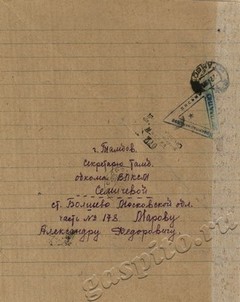 г. Тамбов.
Секретарю Тамб.
обкома ВЛКСМ
Семичевой
ст. Болшево Московской обл.
часть № 178. Марову
Александру Федоровичу
gaspito.ru